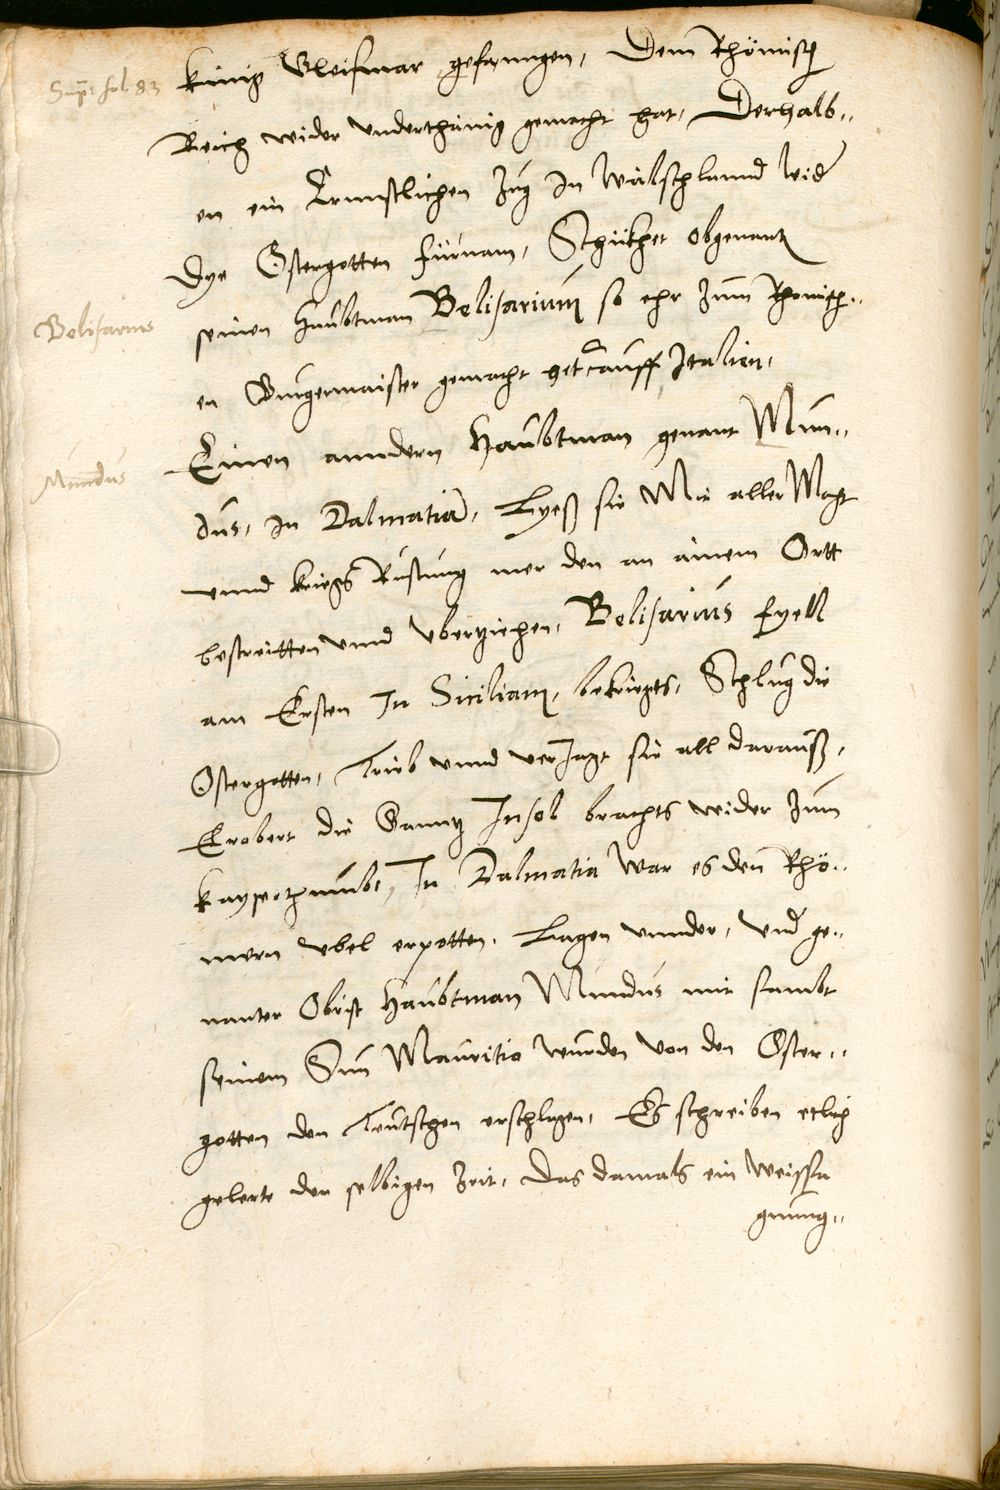 Sup: fol. 83
künig Gleismar gefanngen, Dem Rhömisch
Reich wider underthänig gemacht hat, Derhalb..
en ein Ernnstlichen Zug In Wälschlannd wid
Dye Ostergotten fürnam, Schickhet obgenant
Belisarius
seinen Haubtman Belisarium so ehr zum Rhomisch..
en Burgermaister gemacht het auff Italien,
Einen anndern Haubtman genant Mun..
Mundus
dus, In Dalmatia, Lyeß sie Mit aller Macht
unnd kriegs Rüstung mer den an ainem Ortt
bestreitten unnd uberziehen, Belisarius fyell
am Ersten In Siciliam, bekriegts, Schlug die
Ostergotten, Trieb unnd verJagt sie all darauß,
Erobert die Ganntz Insel brachts wider zum
kayserthumbe, In Dalmatia war es den Rhö..
mern ubel erpotten, Lagen unnder, und ge..
nanter Obrist Haubtman Mundus mit sambt
seinem Sun Mauritio wurden von den Oster..
gotten den Teutschen erschlagen, Es schreiben etlich
gelerte der selbigen Zeit, Das damals ein Weissa
gnung..